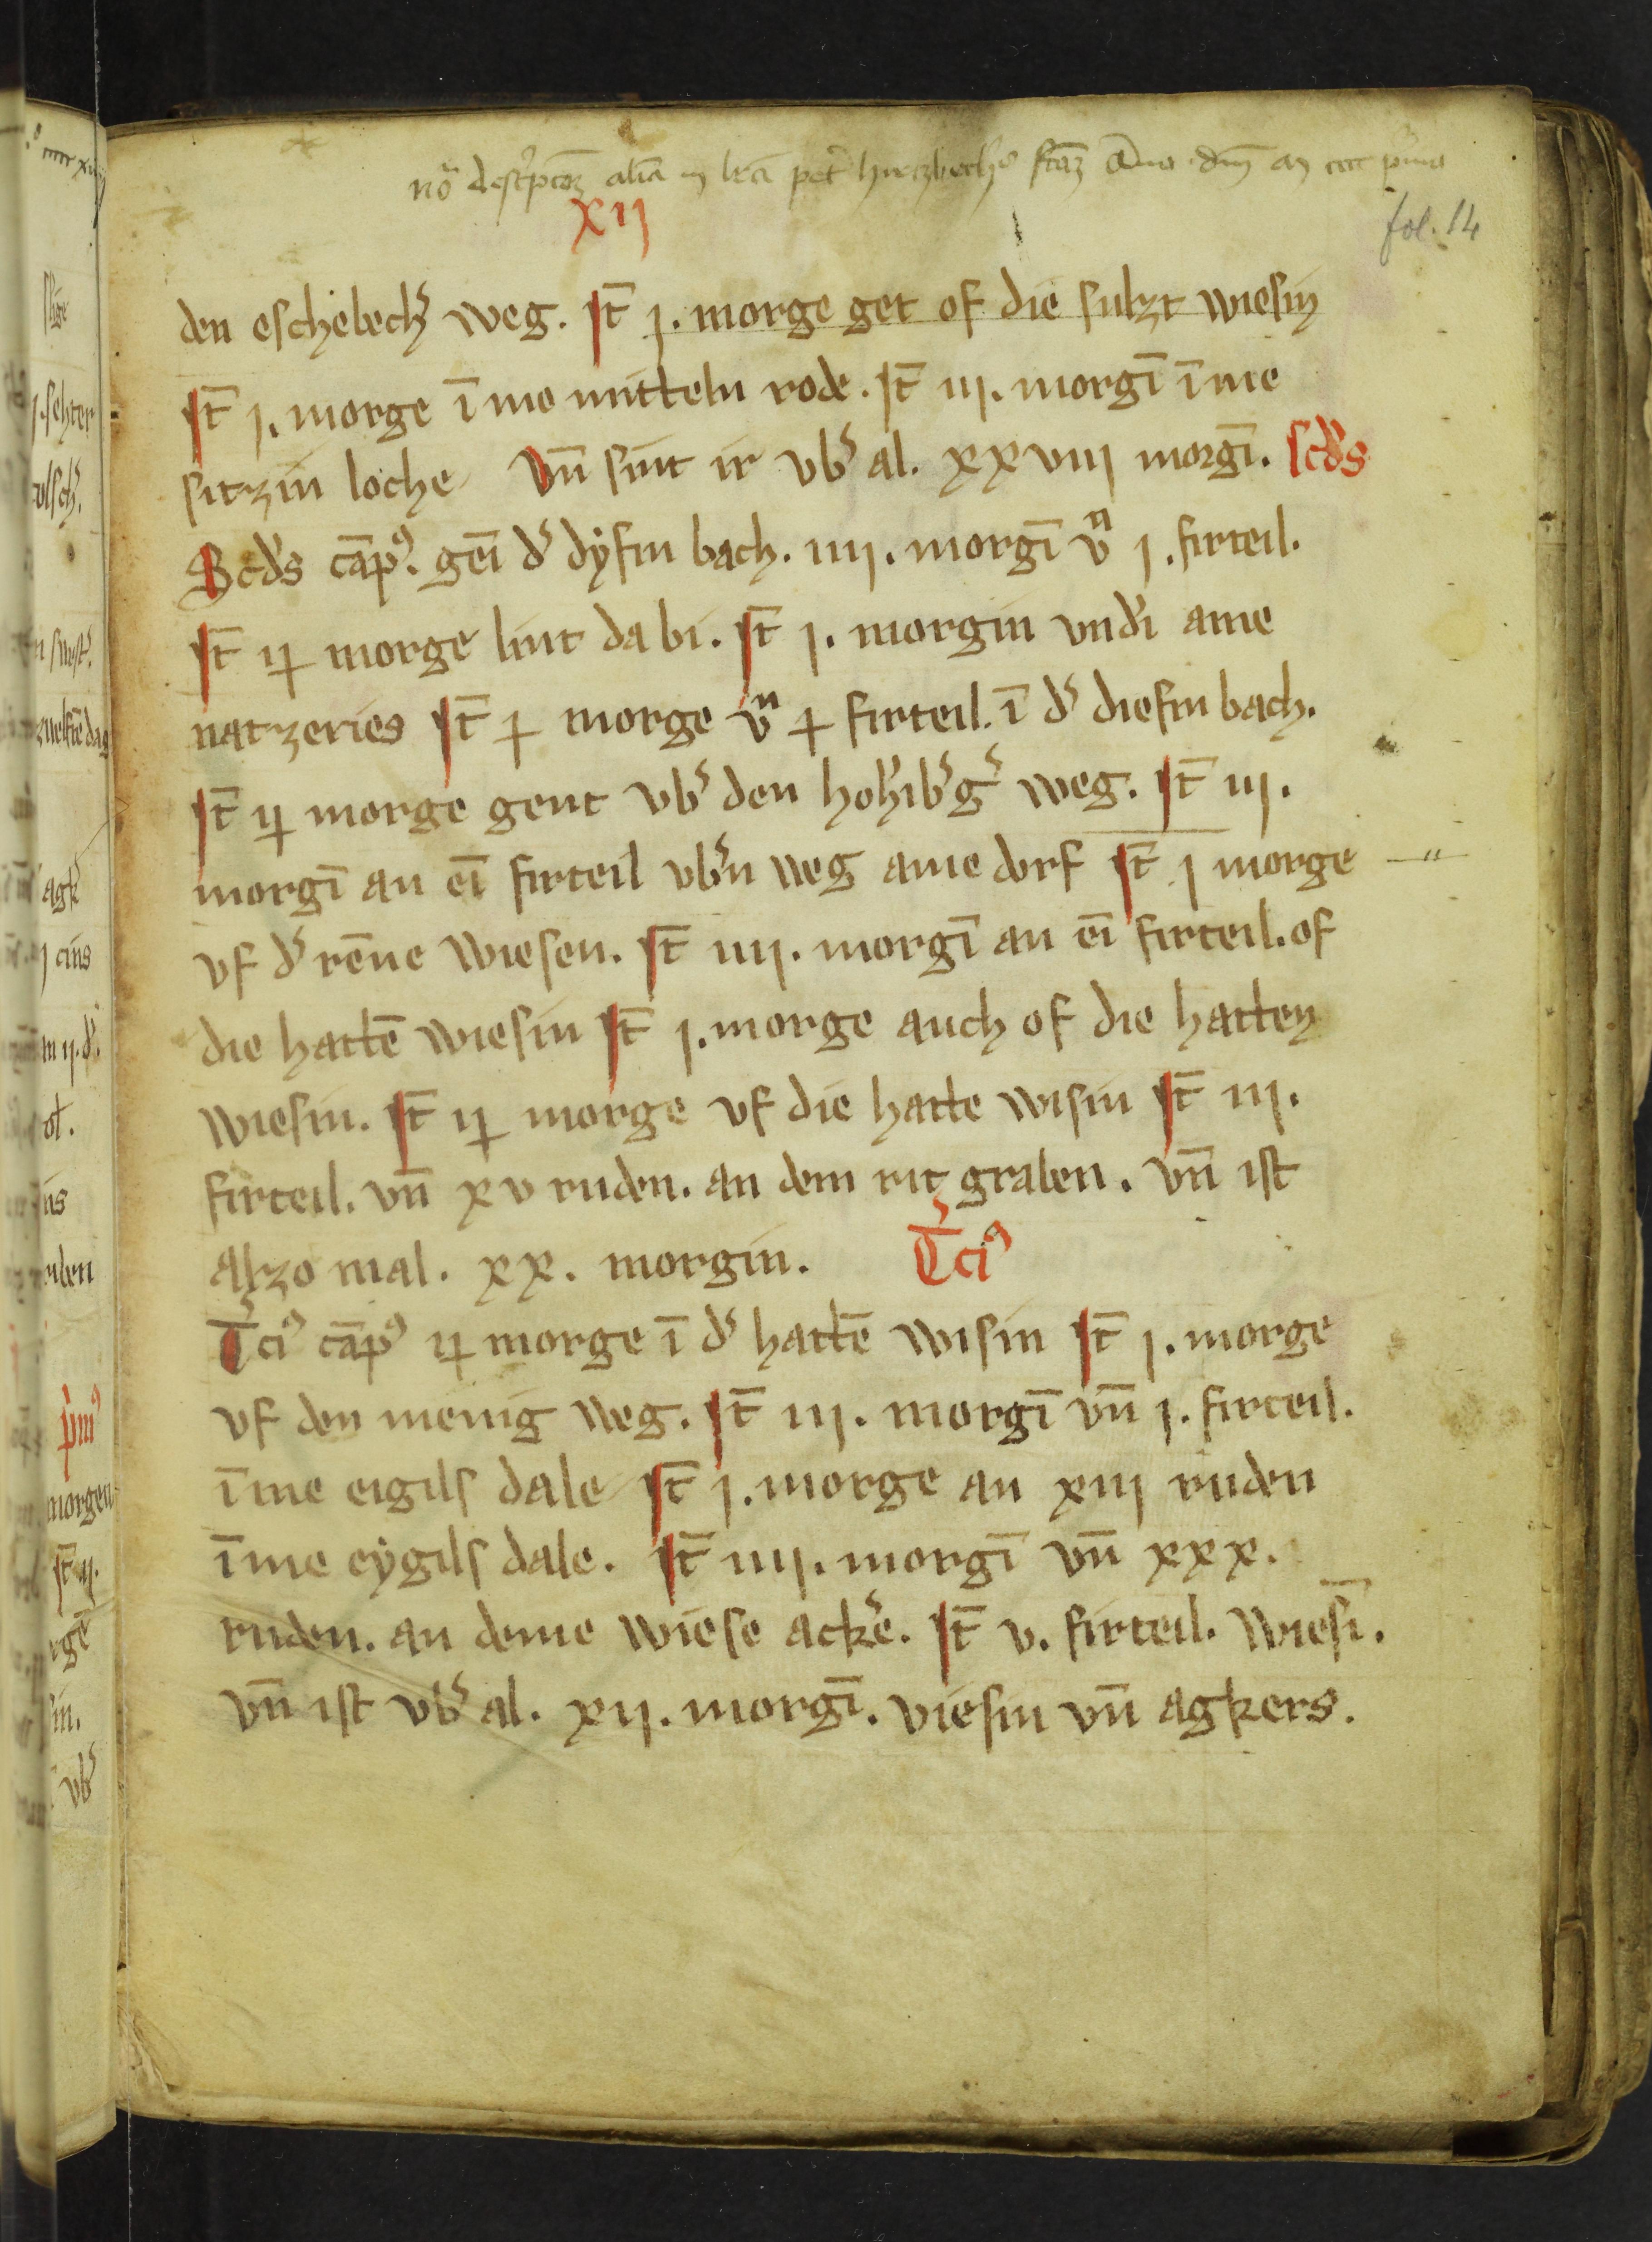 xij
fol. 14
den eschebech᷎ weg. it̄ j. morge get of die sulzt wiesin
it̄ j. morge ī me mitteln rode. it̄ iij. morgī ī me
sitzin loche vn̄ sint ir vb᷎ al. xxviij morgī. scd᷎s
Scd᷎s cāpꝰ. geī d᷎ dÿfin bach. iiij. morgī vn̄ j. firteil.
it̄ ij morge lint da bi. it̄ j. morgin vnd᷎i ame
natzeries it̄ j morge vn̄ j firteil. ī d᷎ diefin bach.
it̄ ij morge gent vb᷎ den hoh᷎ib᷎g᷎ weg. it̄ iij.
morgī an eī firteil vb᷎n weg ame dorf it̄ j morge
vf d᷎ rēne wiesen. it̄ iiij. morgī an eī firteil. of
die hattē wiesin it̄ j. morge auch of die hatten
wiesin. it̄ ij morge vf die hatte wisin it̄ iij.
firteil. vn̄ xv ruden. an dem rit graben. vn̄ ist
alzo mal. xx. morgin. T᷎ciꝰ
T᷎ciꝰ cāpꝰ ij morge ī d᷎ hattē wisin it̄ j. morge
vf den menig weg. it̄ iij. morgī vn̄ j. firteil.
ī me eigils dale it̄ j. morge an xiij ruden
ī me eÿgils dale. it̄ iiij. morgī vn̄ xxx.
ruden. an deme wiese ack᷎e. it̄ v. firteil. wiesī.
vn̄ ist vb᷎ al. xij. morgī. viesin vn̄ agkers.